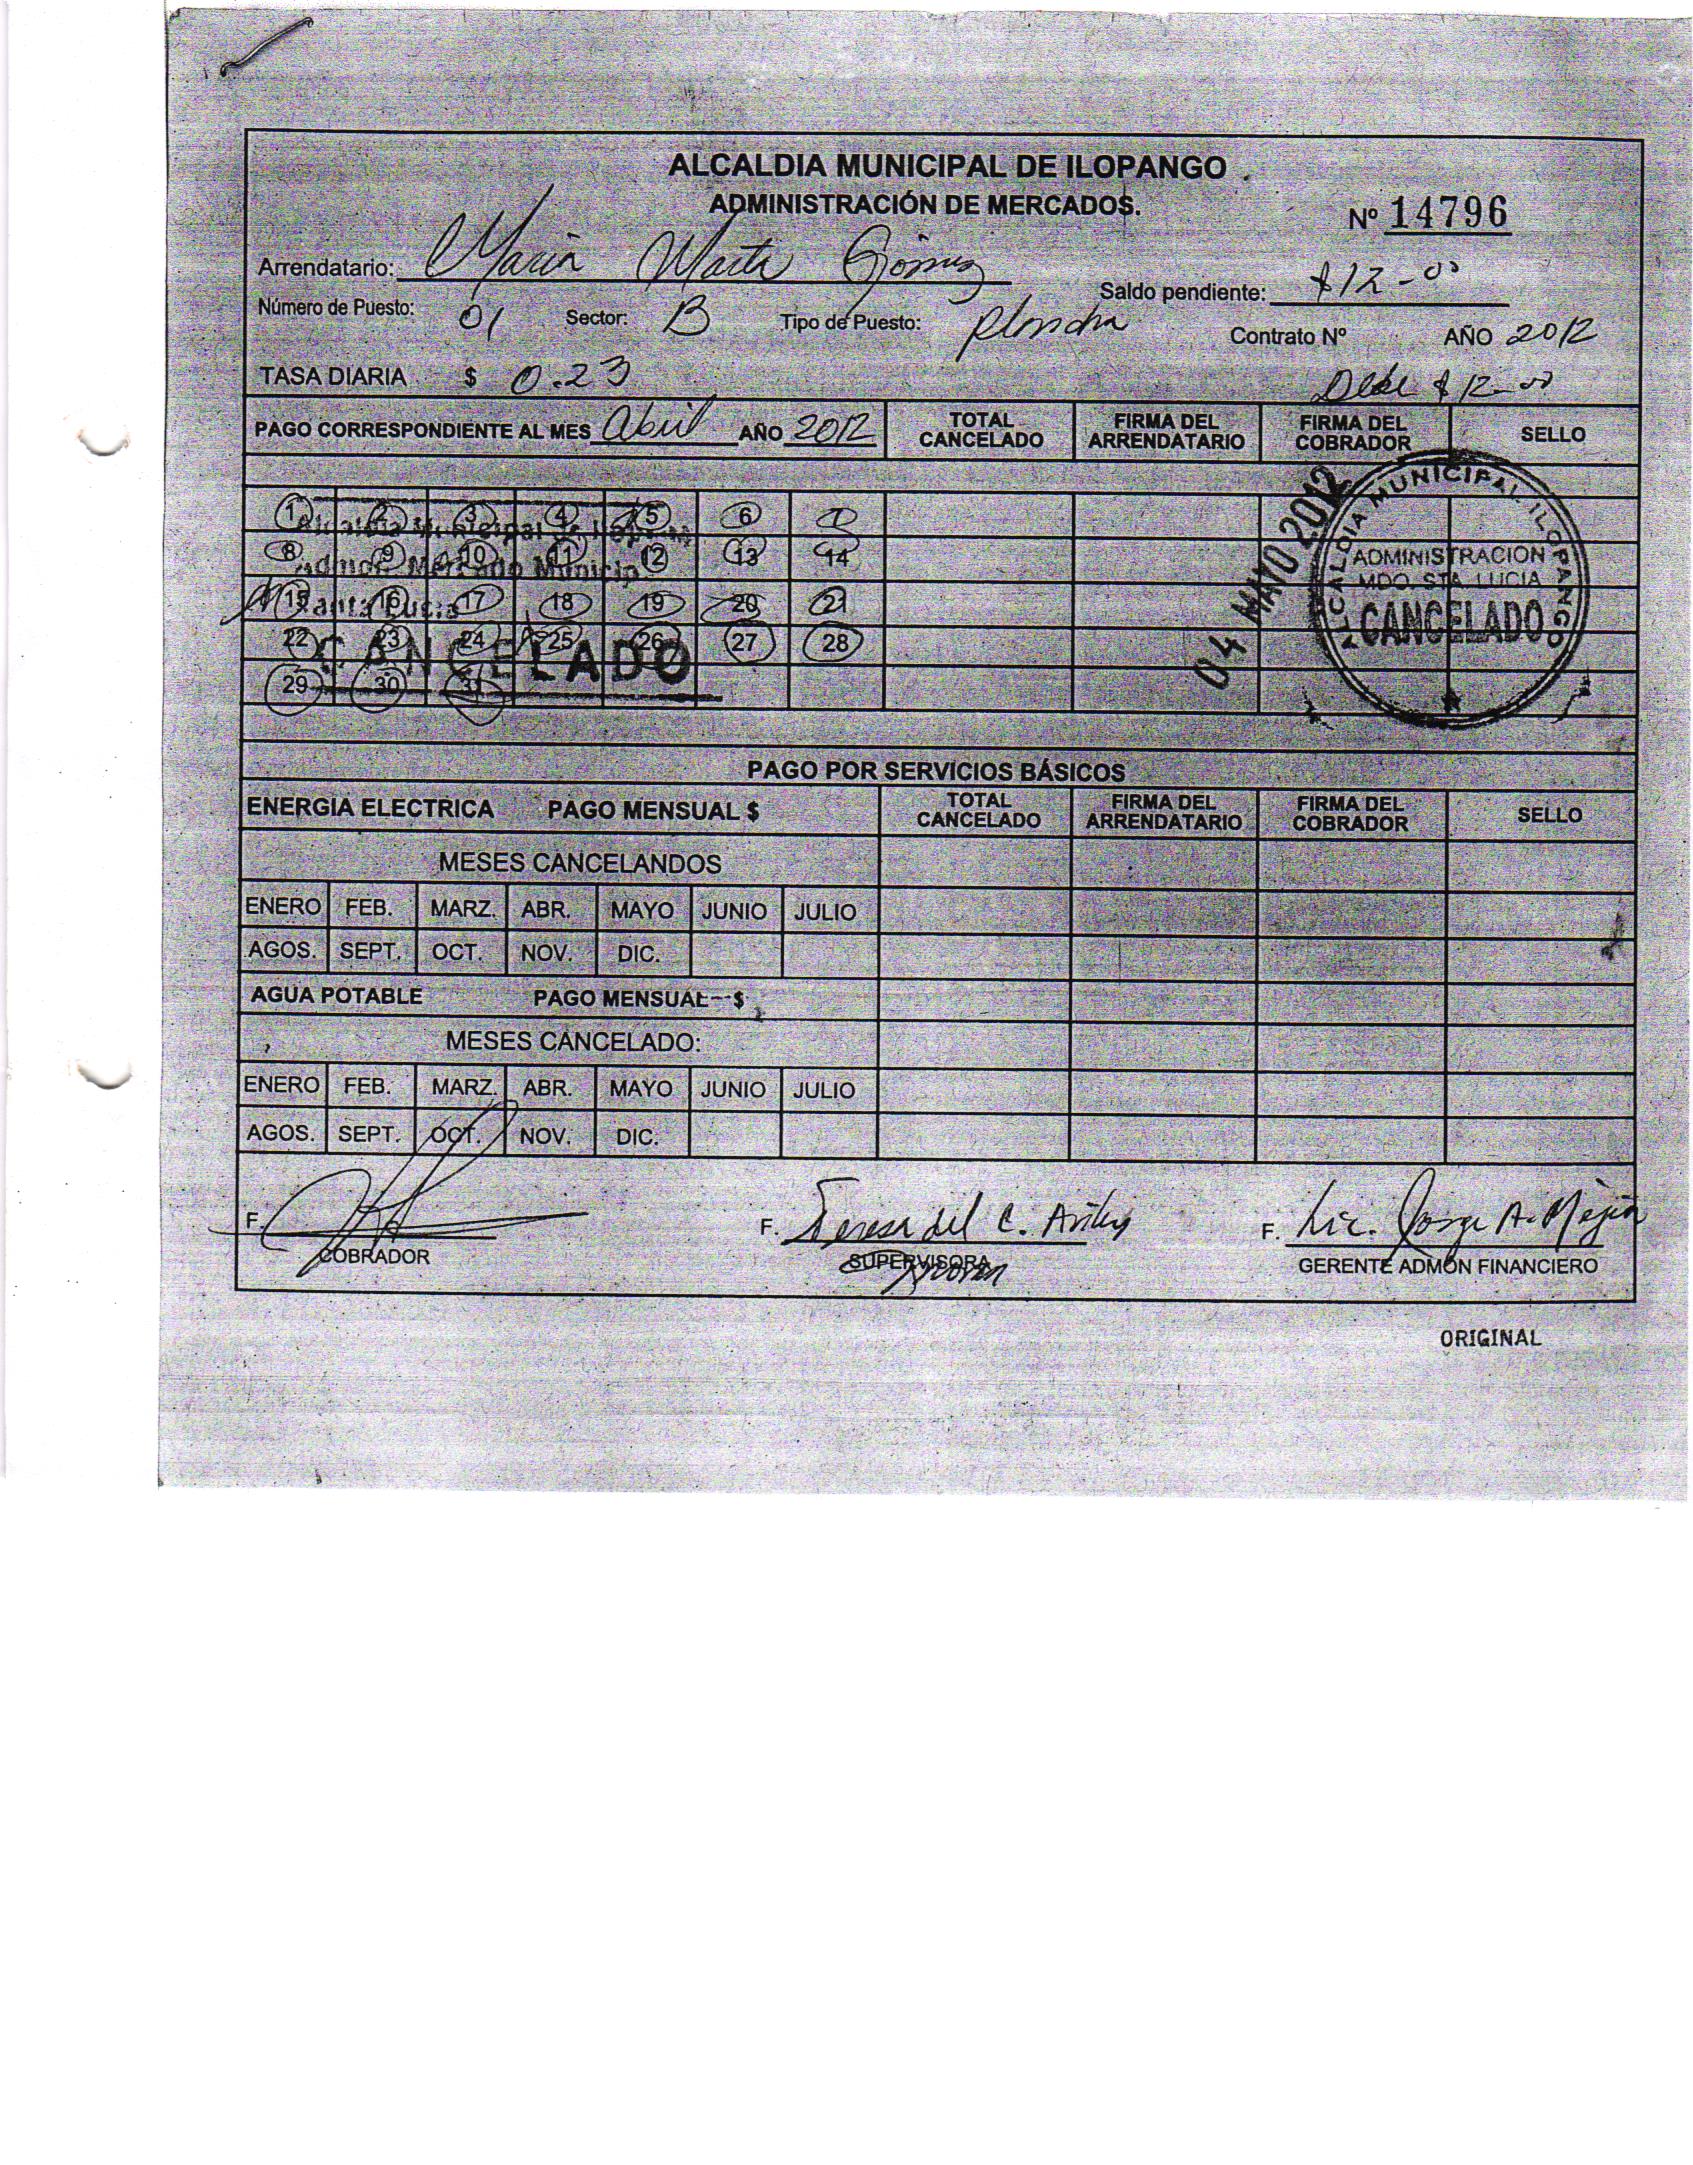 ALCALDIA MUNICIPAL DE ILOPANGO
ADMINISTRACIÓN DE MERCADOS.
Nº 14796
Arrendatario: Maria Marta Gómez
Saldo pendiente: $12-00
Número de Puesto: 01 Sector: B Tipo de Puesto: plancha Contrato Nº AÑO 2012
TASA DIARIA $ 0.23 Debe $12-00
PAGO CORRESPONDIENTE AL MES Abril AÑO 2012 TOTAL CANCELADO FIRMA DEL ARRENDATARIO FIRMA DEL COBRADOR SELLO
1 2 3 4 5 6 7
8 9 10 11 12 13 14
15 16 17 18 19 20 21
22 23 24 25 26 27 28
29 30 31
Alcaldia Municipal de
Admon. Mercado Municip
Santa Lucia
CANCELADO
04 MAYO 2012
ALCALDIA MUNICIPAL ILOPANGO
ADMINISTRACION
MDO. STA. LUCIA
CANCELADO
PAGO POR SERVICIOS BÁSICOS
ENERGIA ELECTRICA PAGO MENSUAL $ TOTAL CANCELADO FIRMA DEL ARRENDATARIO FIRMA DEL COBRADOR SELLO
MESES CANCELANDOS
ENERO FEB. MARZ. ABR. MAYO JUNIO JULIO
AGOS. SEPT. OCT. NOV. DIC.
AGUA POTABLE PAGO MENSUAL $
MESES CANCELADO:
ENERO FEB. MARZ. ABR. MAYO JUNIO JULIO
AGOS. SEPT. OCT. NOV. DIC.
F. F. Teresa del C. F. Lic. Jorge A. Mejia
COBRADOR SUPERVISORA GERENTE ADMÓN FINANCIERO
ORIGINAL